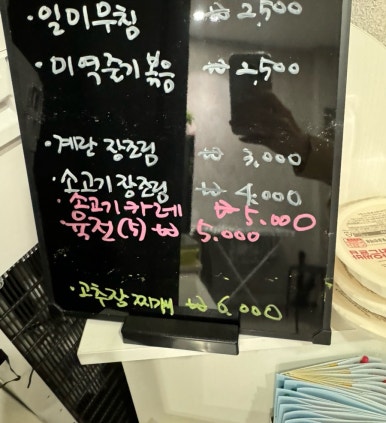 · 일미무침 ₩ 2,500
· 미역줄기볶음 ₩ 2,500
· 계란 장조림 ₩ 3,000
· 소고기 장조림 ₩ 4,000
· 소고기카레 ₩ 5.000
육전(5) ₩ 5.000
· 고추장찌개 ₩ 6,000